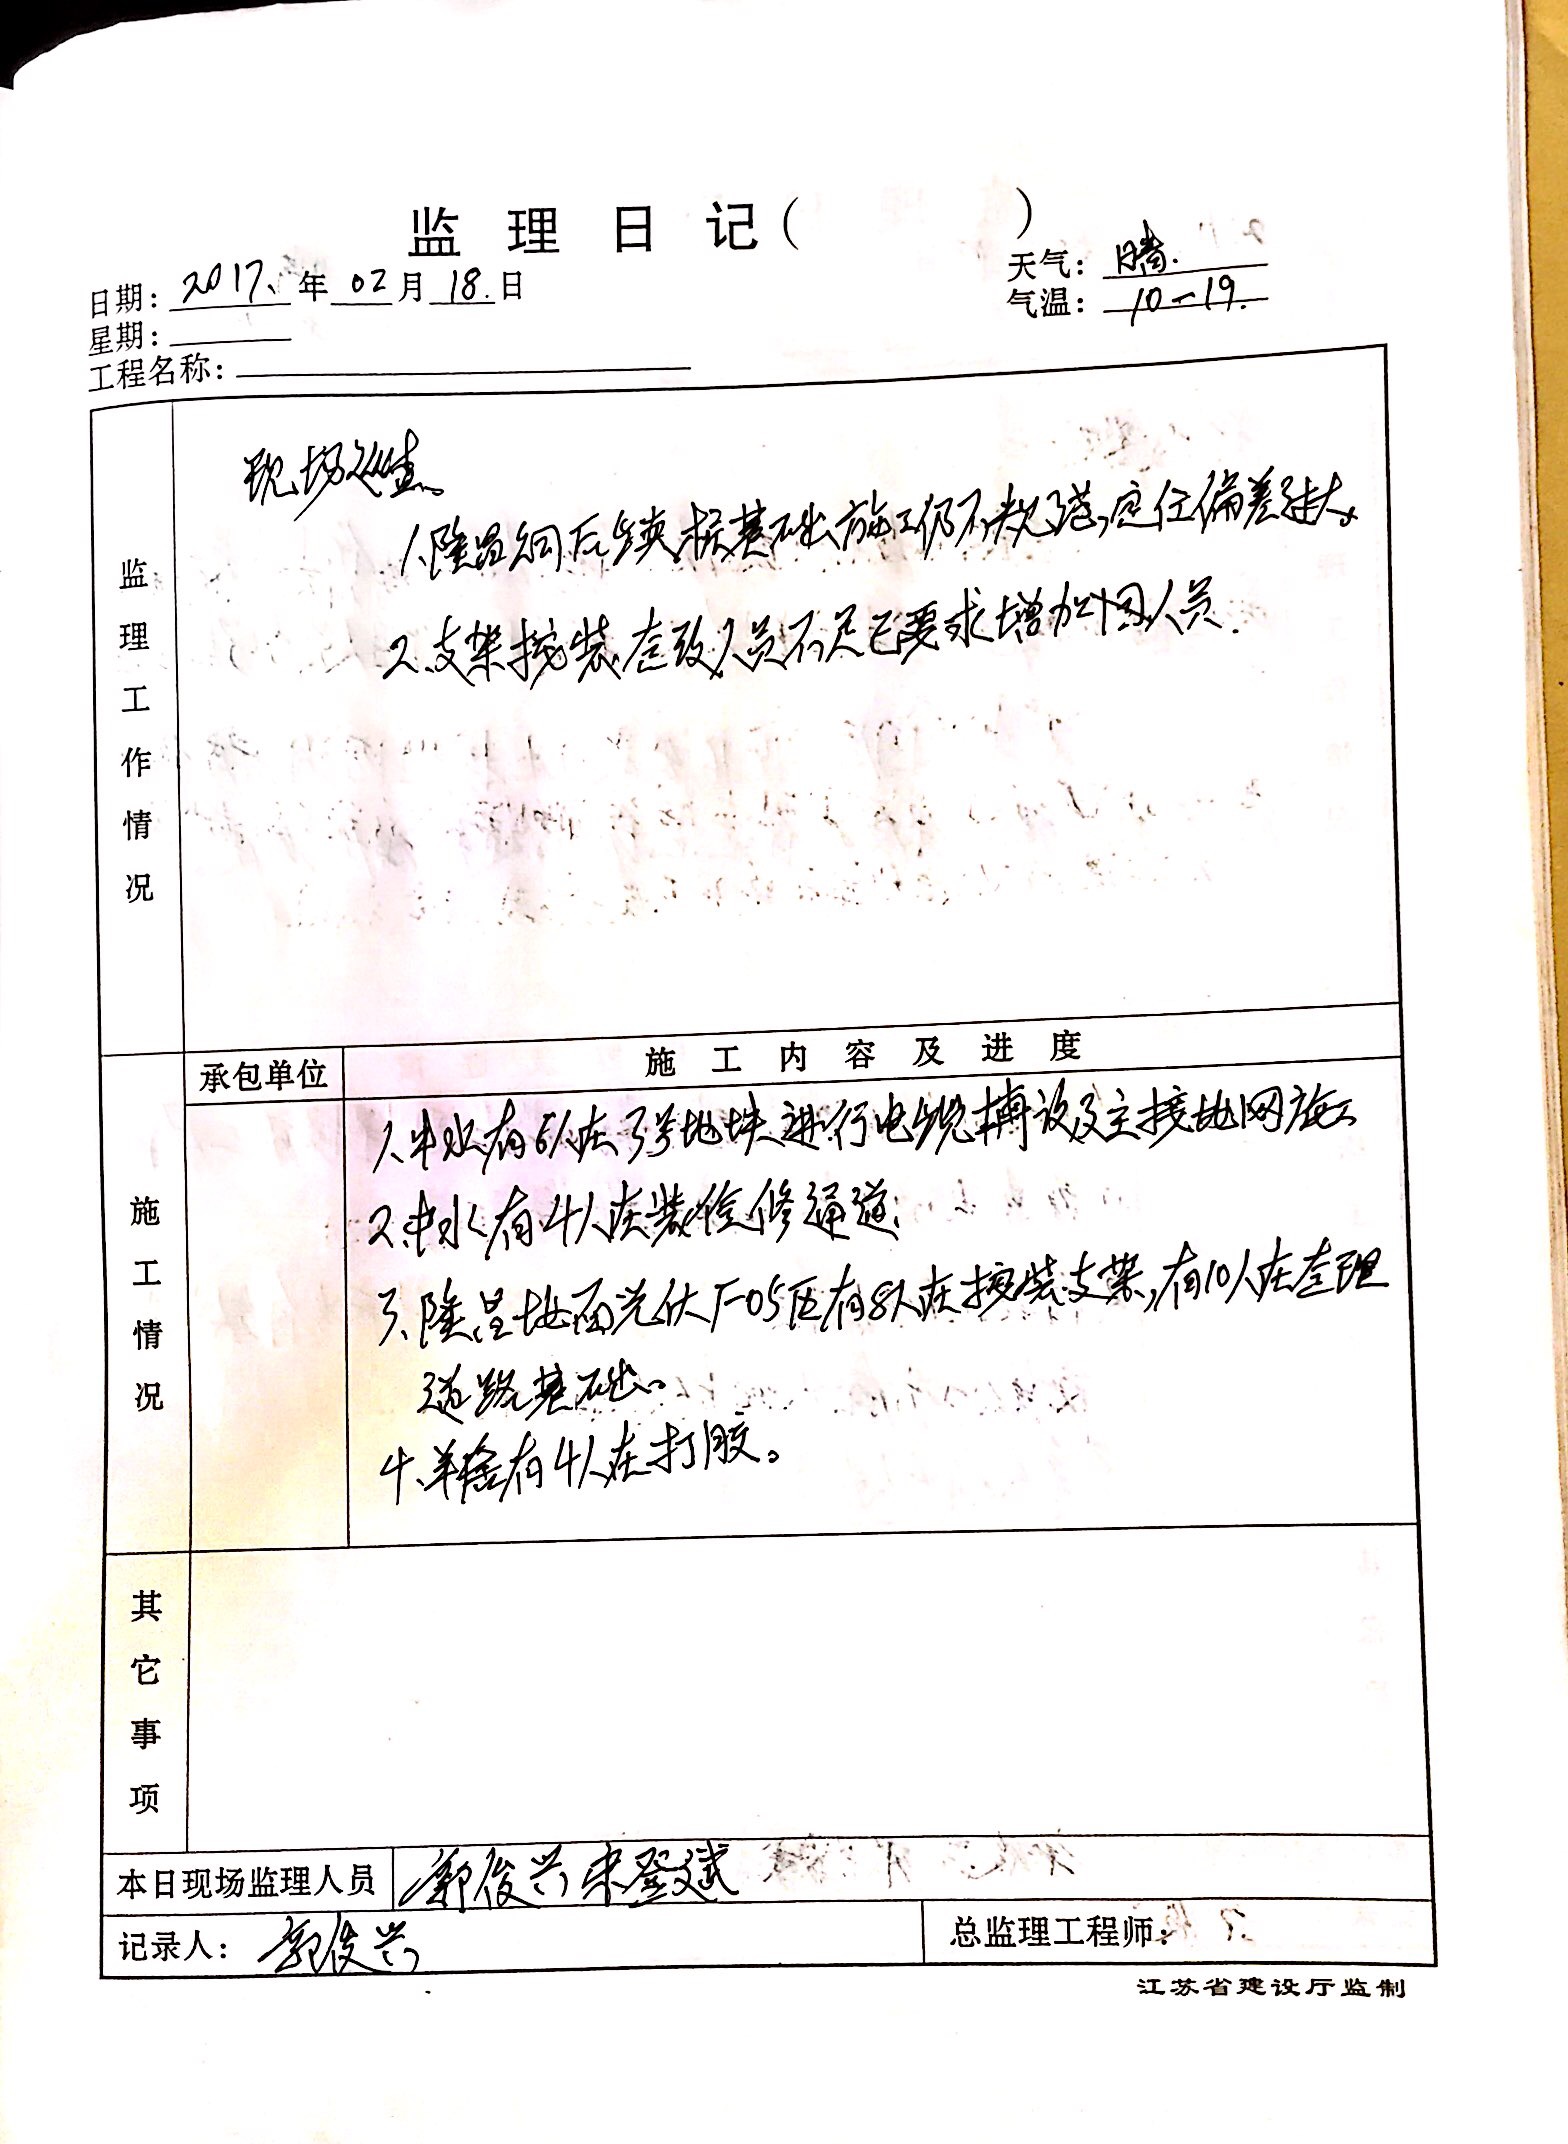 监理日记(        )
日期: 2017. 年 02 月 18. 日
天气: 晴.
星期:
气温: 10-19.
工程名称:
监理工作情况
现场巡查。
1、隆昌钢后续桩基础施工仍不规范,定位偏差过大。
2、支架按装 人员不足已要求增加 人员.
承包单位
施工内容及进度
施工情况
1、中水有6人在3号地块进行电缆 设及主接地网施工
2、中水有4人在装检修通道.
3、隆 地面光伏厂05区有8人在按装支架,有10人在 理
道路基础。
4、羊 有4人在打胶。
其它事项
本日现场监理人员 郭俊兴 宋登斌
记录人: 郭俊兴
总监理工程师:
江苏省建设厅监制